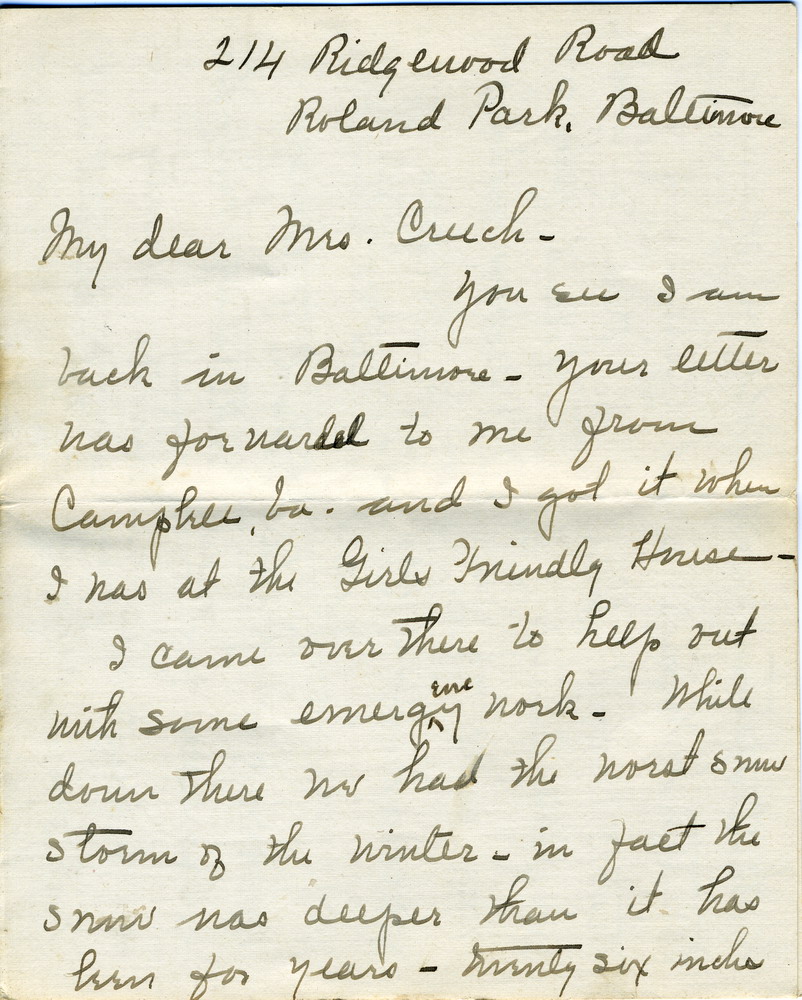 214 Ridgewood Road
Roland Park, Baltimore
My dear Mrs. Creech -
You see I am
back in Baltimore - Your letter
was forwarded to me from
and I got it when
I was at the Girls Friendly House -
I came over there to help out
with some emergency work - While
down there we had the worst snow
storm of the winter - in fact the
snow was deeper than it has
been for years - twenty six inches